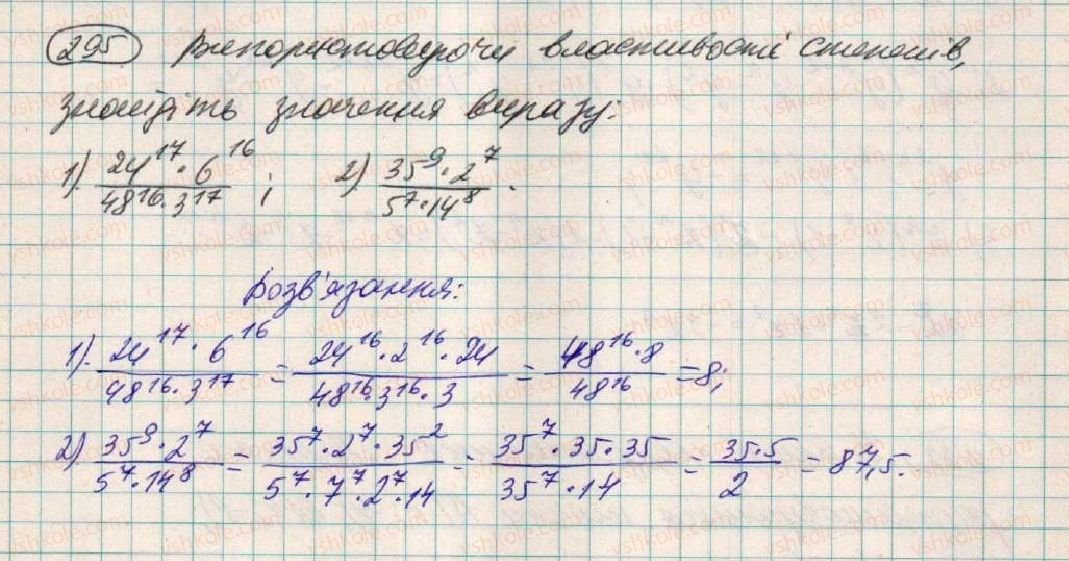 295 Використовуючи властивості степенів,
знайдіть значення виразу:
1) 24^17·6^16 / 48^16·3^17 ; 2) 35^9·2^7 / 5^7·14^8 .
Розв'язання:
1). 24^17·6^16 / 48^16·3^17 = 24^16·2^16·24 / 48^16·3^16·3 = 48^16·8 / 48^16 = 8;
2) 35^9·2^7 / 5^7·14^8 = 35^7·2^7·35^2 / 5^7·7^7·2^7·14 = 35^7·35·35 / 35^7·14 = 35·5 / 2 = 87,5.